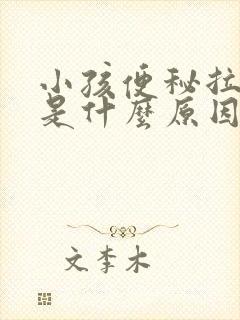 小孩便秘拉
是什麼原因
文李木